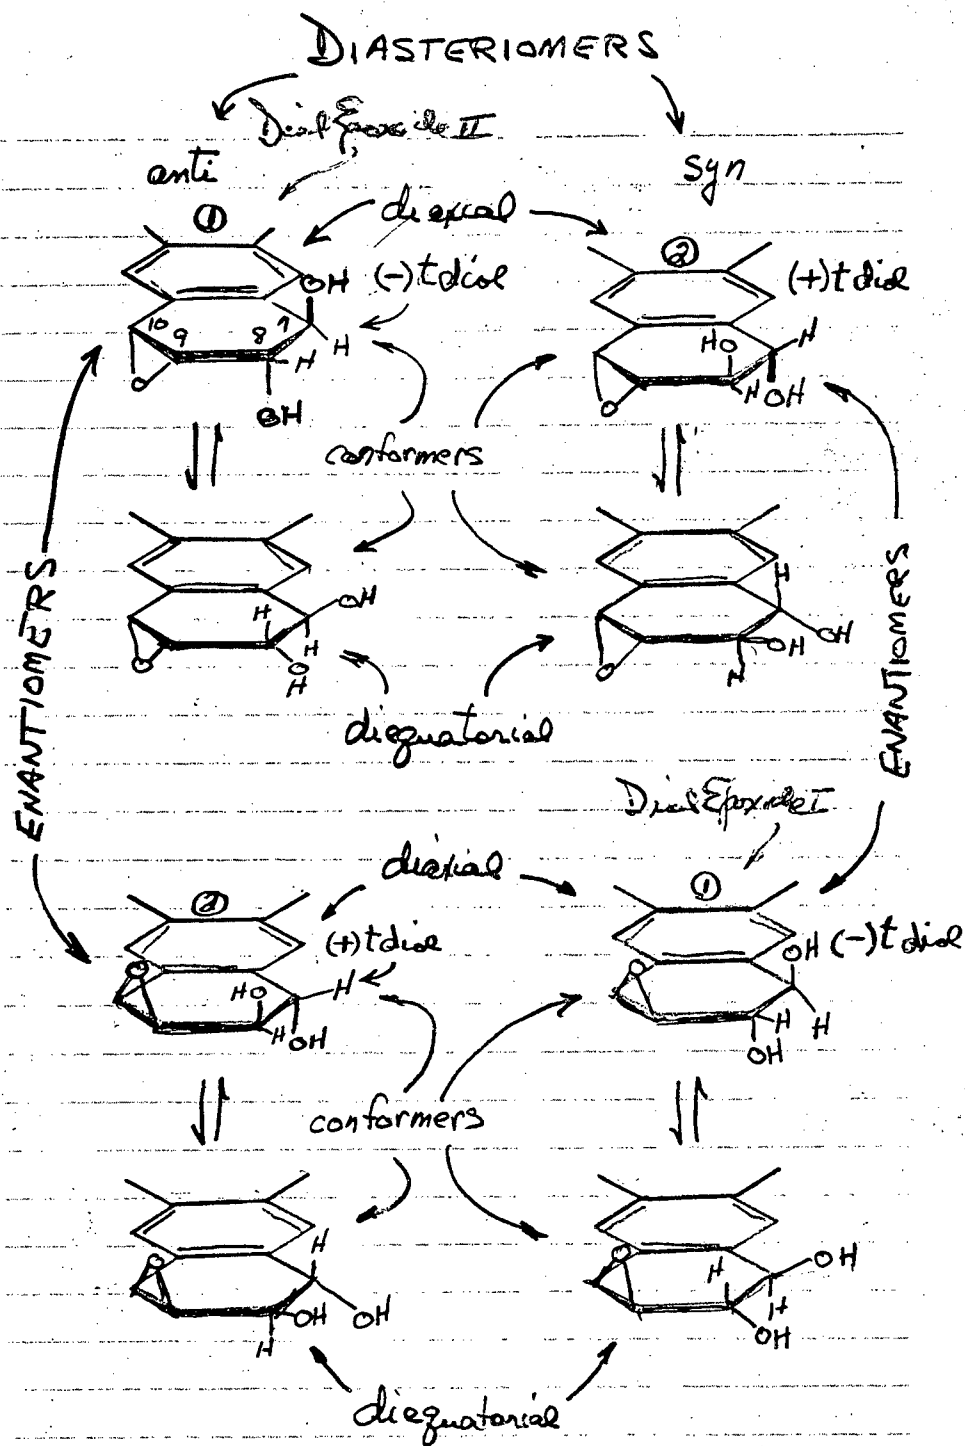 DIASTERIOMERS
Diol Epoxide II
anti
syn
①
diaxial
②
OH
(-)t diol
(+)t diol
10
9
8
7
H
HO
H
H
O
OH
O
H
OH
conformers
ENANTIOMERS
ENANTIOMERS
H
OH
H
H
O
O
H
O
OH
OH
H
diequatorial
Diol Epoxide I
diaxial
②
①
(+)t diol
OH
(-)t diol
O
HO
H
O
H
OH
H
H
OH
conformers
O
H
OH
OH
H
O
H
OH
H
OH
diequatorial